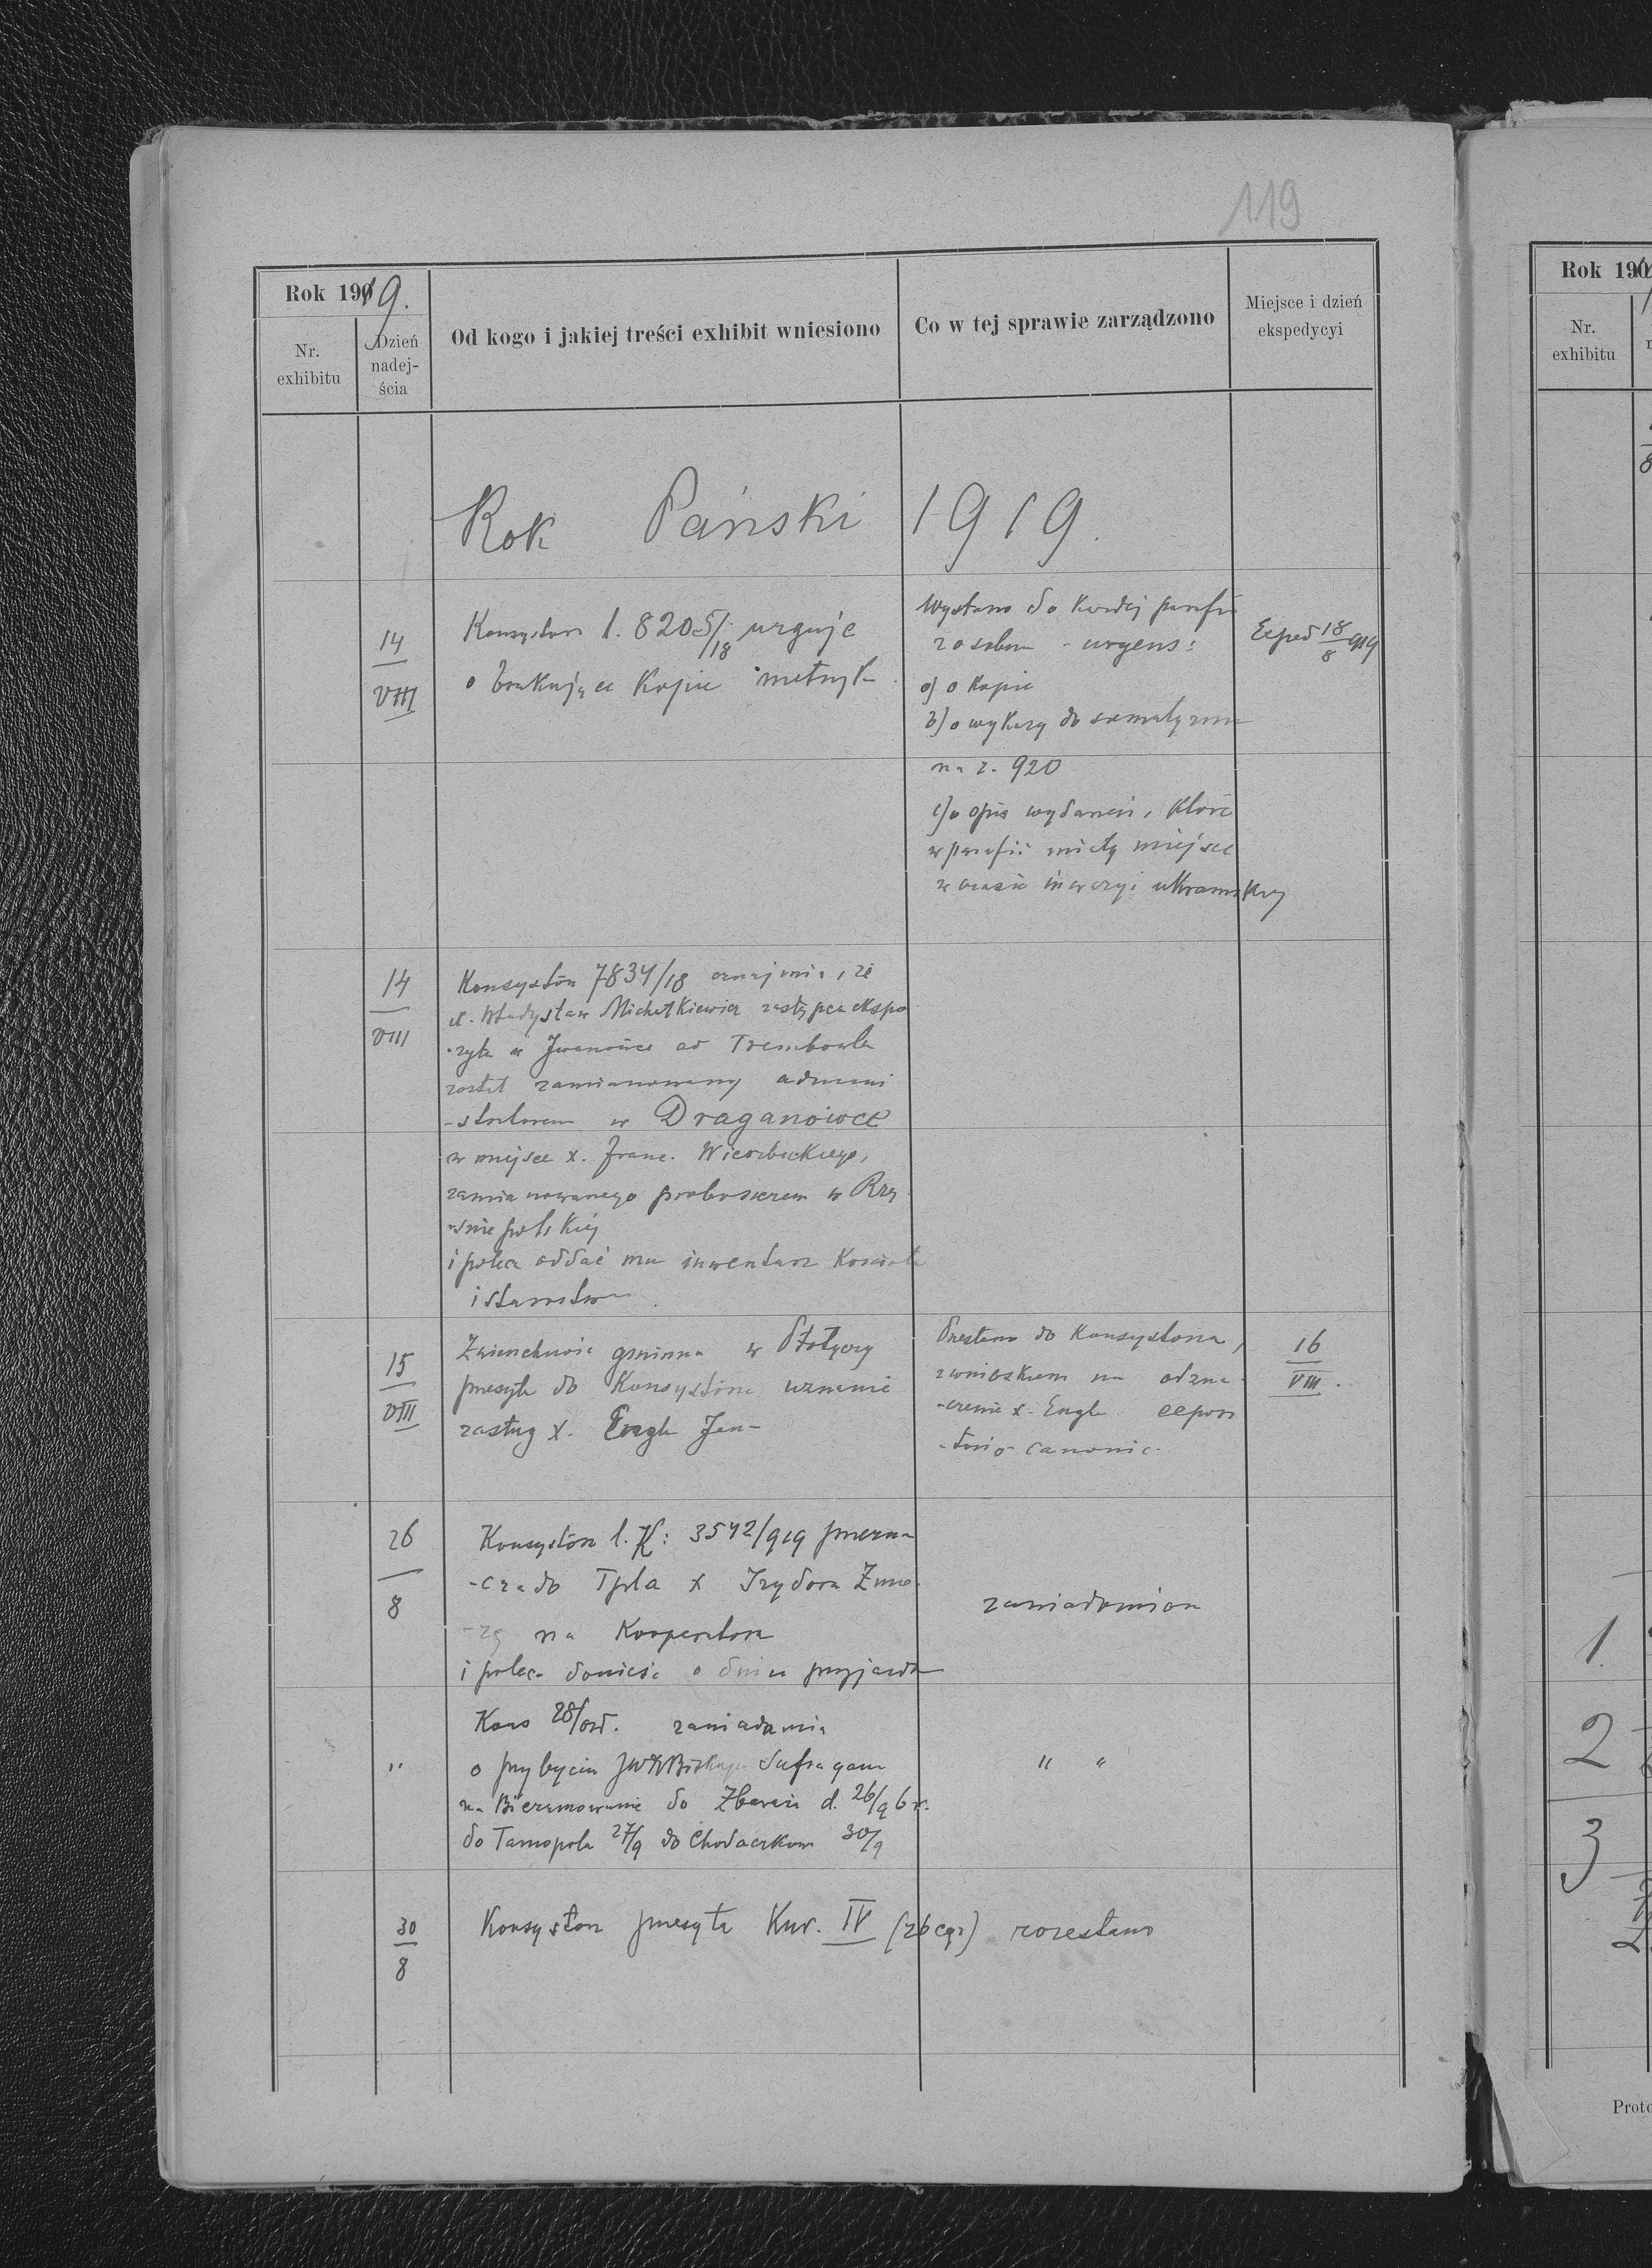 119
Rok 1919.
Nr. exhibitu
Dzień nadej-ścia
Od kogo i jakiej treści exhibit wniesiono
Co w tej sprawie zarządzono
Miejsce i dzień ekspedycyi
Rok Pański 1919.
14
VIII
Konsystorz l. 8205/18 urguje
o brakujące kopie metryk
Wysłano do każdej parafii
osobno - urgens:
a) o kopie
b) o wykazy do szematyzmu
na r. 920
c) o opis wydarzeń, które
w parafii miały miejsce
w czasie inwazyi ukraińskiej
Exped 18/8 919
14
VIII
Konsystorz 7834/18 oznajmia, że
x. Władysław Michałkiewicz zastępca ekspo
-zyta w Iwanówce ad Trembowla
został zamianowany admini
-stratorem w Draganówce
w miejsce x. Franc. Wierzbickiego,
zamianowanego proboszczem w Rzę
-śnie polskiej
i poleca oddać mu inwentarz kościoła
i
15
VIII
Zwierzchność gminna w
przesyła do Konsystorza uznanie
zasług x. Engla Jan-
Przesłano do Konsystorza,
z wnioskiem na odzna-
-czenie x. Engla expos
-torio canonic.
16
VIII.
26
8
Konsystorz l. K: 3542/919 przezna
-cza do Tpla x Izydora
na Kooperatora
i poleca donieść o dniu przyjazdu
zawiadomiono
"
Kons 28/ord. zawiadamia
o przybyciu Biskupa Sufragana
na Bierzmowanie do Zbaraża d. 26/9 b r.
do Tarnopola 27/9 do Chodaczkowa 30/9
" "
30
8
Konsystorz przesyła Kur. IV (26 egz)
rozesłano
Rok 191
Nr. exhibitu
8
1.
2
3
Proto